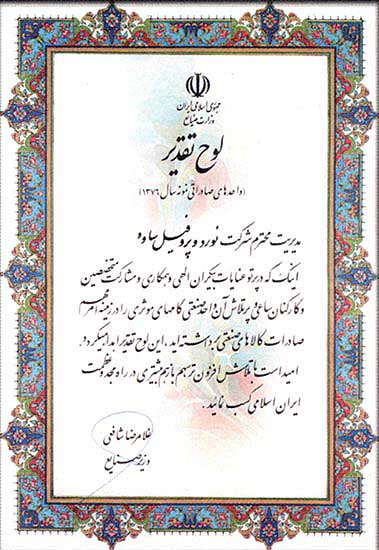 جمهوری اسلامی ایران
وزارت صنایع
لوح تقدیر
(واحدهای صادراتی نمونه سال ۱۳۷۶)
مدیریت محترم شرکت نورد و پروفیل ساوه
اینک که در پرتو عنایات بیکران الهی و همکاری و مشارکت متخصصین
و کارکنان ساعی و پرتلاش آن واحد صنعتی گامهای موثری را در زمینه امر مهم
صادرات کالاهای صنعتی برداشته اید، این لوح تقدیر اهدا میگردد.
امید است با تلاش افزون تر سهم باز هم بیشتری در راه مجد و عظمت
ایران اسلامی کسب نمائید.
غلامرضا شافعی
وزیر صنایع